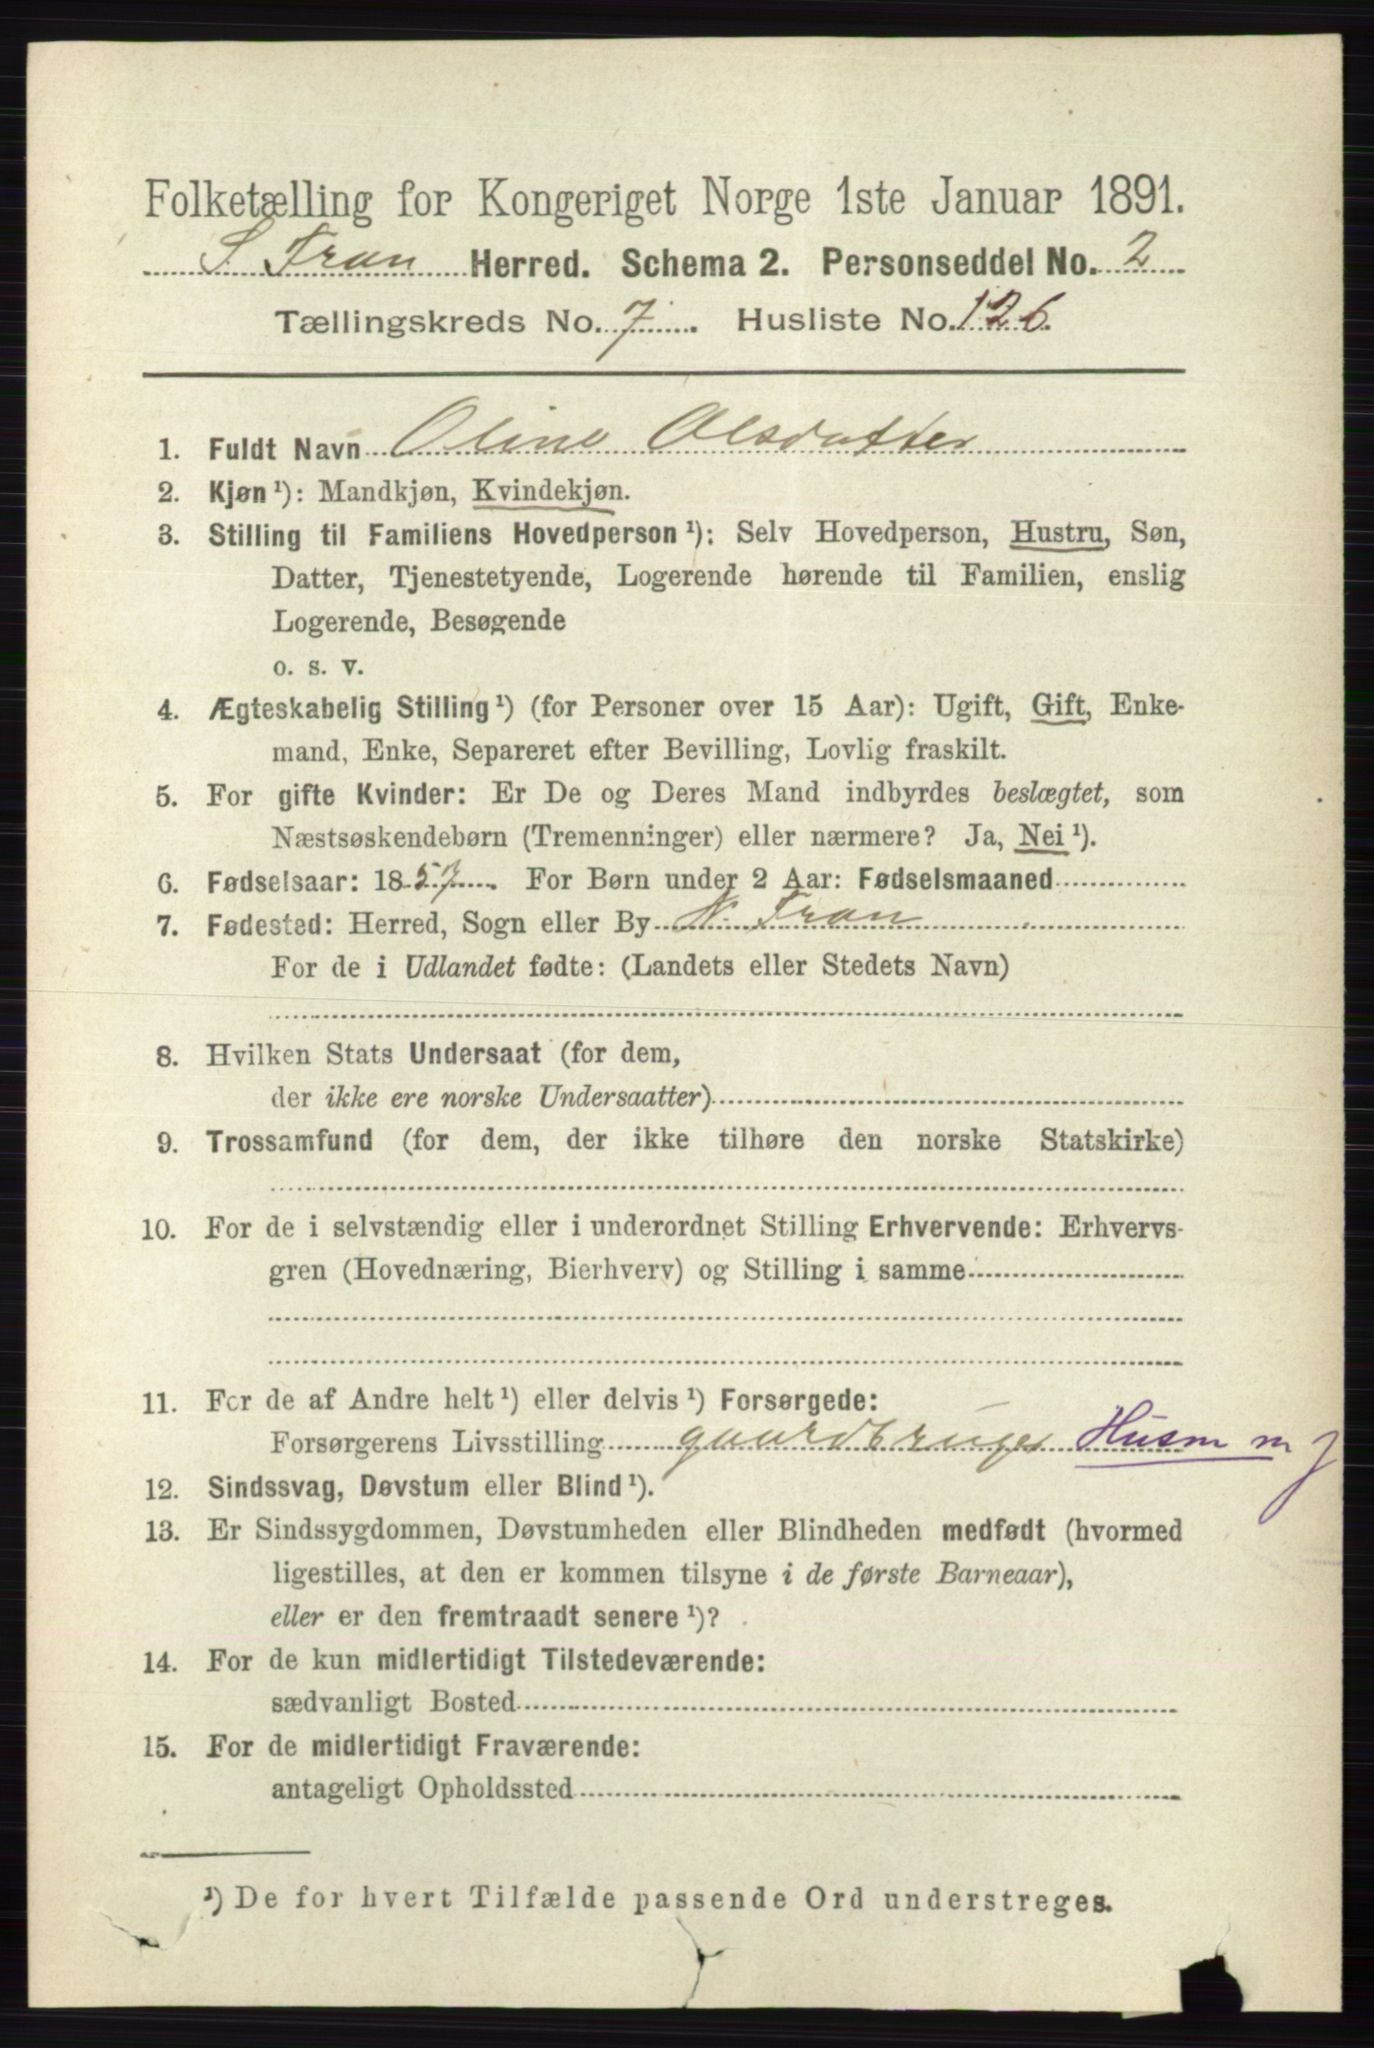 Folketælling for Kongeriget Norge 1ste Januar 1891.
S. Fron Herred. Schema 2. Personseddel No. 2
Tællingskreds No. 7. Husliste No. 126.
1. Fuldt Navn Oline Olsdatter
2. Kjøn ¹): Mandkjøn, Kvindekjøn.
3. Stilling til Familiens Hovedperson ¹): Selv Hovedperson, Hustru, Søn,
Datter, Tjenestetyende, Logerende hørende til Familien, enslig
Logerende, Besøgende
o. s. v.
4. Ægteskabelig Stilling ¹) (for Personer over 15 Aar): Ugift, Gift, Enke-
mand, Enke, Separeret efter Bevilling, Lovlig fraskilt.
5. For gifte Kvinder: Er De og Deres Mand indbyrdes beslægtet, som
Næstsøskendebørn (Tremenninger) eller nærmere? Ja, Nei ¹).
6. Fødselsaar: 1857. For Børn under 2 Aar: Fødselsmaaned
7. Fødested: Herred, Sogn eller By N. Fron
For de i Udlandet fødte: (Landets eller Stedets Navn)
8. Hvilken Stats Undersaat (for dem,
der ikke ere norske Undersaatter)
9. Trossamfund (for dem, der ikke tilhøre den norske Statskirke)
10. For de i selvstændig eller i underordnet Stilling Erhvervende: Erhvervs-
gren (Hovednæring, Bierhverv) og Stilling i samme
11. For de af Andre helt ¹) eller delvis ¹) Forsørgede:
Forsørgerens Livsstilling gaardbruger Husm m j
12. Sindssvag, Døvstum eller Blind ¹).
13. Er Sindssygdommen, Døvstumheden eller Blindheden medfødt (hvormed
ligestilles, at den er kommen tilsyne i de første Barneaar),
eller er den fremtraadt senere ¹)?
14. For de kun midlertidigt Tilstedeværende:
sædvanligt Bosted
15. For de midlertidigt Fraværende:
antageligt Opholdssted
¹) De for hvert Tilfælde passende Ord understreges.